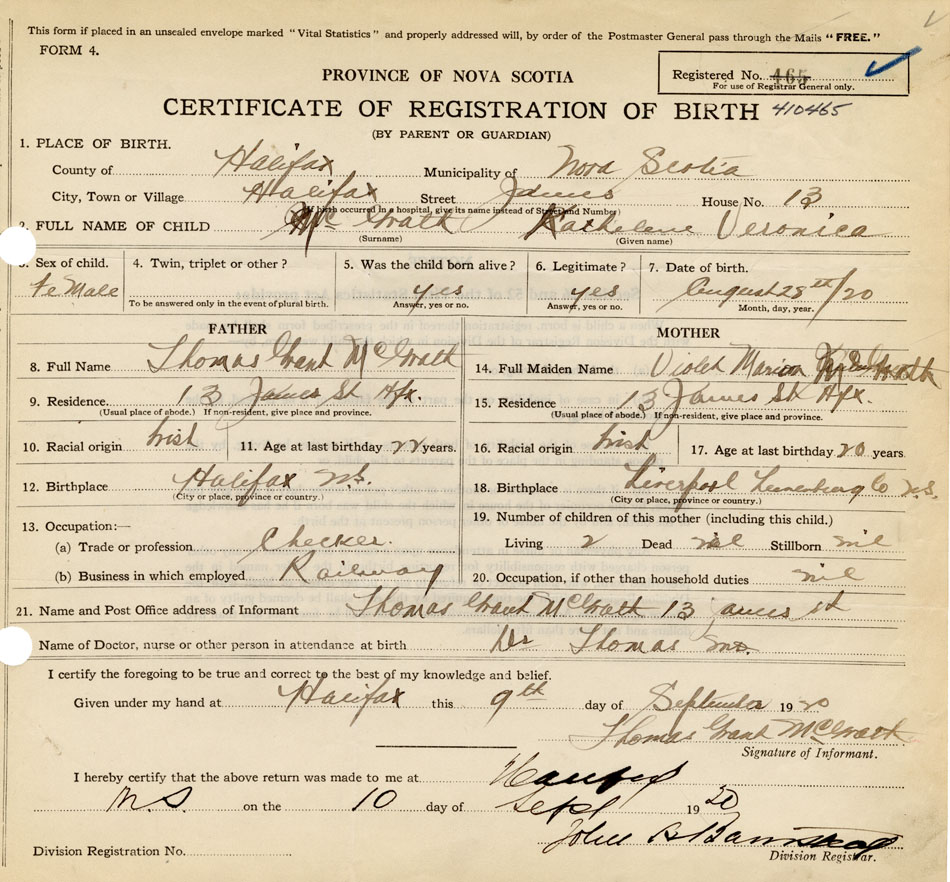 This form if placed in an unsealed envelope marked "Vital Statistics" and properly addressed will, by order of the Postmaster General pass through the Mails "FREE."
FORM 4.
PROVINCE OF NOVA SCOTIA
Registered No. 465
For use of Registrar General only.
CERTIFICATE OF REGISTRATION OF BIRTH 410465
(BY PARENT OR GUARDIAN)
1. PLACE OF BIRTH.
County of Halifax Municipality of Nova Scotia
City, Town or Village Halifax Street James House No. 13
(If birth occurred in a hospital, give its name instead of Street and Number)
2. FULL NAME OF CHILD McGrath Kathelene Veronica
(Surname) (Given name)
3. Sex of child. 4. Twin, triplet or other? 5. Was the child born alive? 6. Legitimate? 7. Date of birth.
Female yes yes August 28th/20
To be answered only in the event of plural birth. Answer, yes or no. Answer, yes or no. Month, day, year.
FATHER
8. Full Name Thomas Grant McGrath
9. Residence. 13 James St Hfx.
(Usual place of abode.) If non-resident, give place and province.
10. Racial origin Irish 11. Age at last birthday 22 years.
12. Birthplace Halifax N.S.
(City or place, province or country.)
13. Occupation:—
(a) Trade or profession Checker.
(b) Business in which employed Railway
MOTHER
14. Full Maiden Name Violet Marion
15. Residence 13 James St Hfx.
(Usual place of abode.) If non-resident, give place and province.
16. Racial origin Irish 17. Age at last birthday 20 years
18. Birthplace Liverpool Lunenburg Co N.S.
(City or place, province or country.)
19. Number of children of this mother (including this child.)
Living 2 Dead nil Stillborn nil
20. Occupation, if other than household duties nil
21. Name and Post Office address of Informant Thomas Grant McGrath 13 James st
Name of Doctor, nurse or other person in attendance at birth Dr Thomas MD.
I certify the foregoing to be true and correct to the best of my knowledge and belief.
Given under my hand at Halifax this 9th day of September 1920
Thomas Grant McGrath
Signature of Informant.
I hereby certify that the above return was made to me at
N.S. on the 10 day of Sept 1920
John
Division Registration No. Division Registrar.